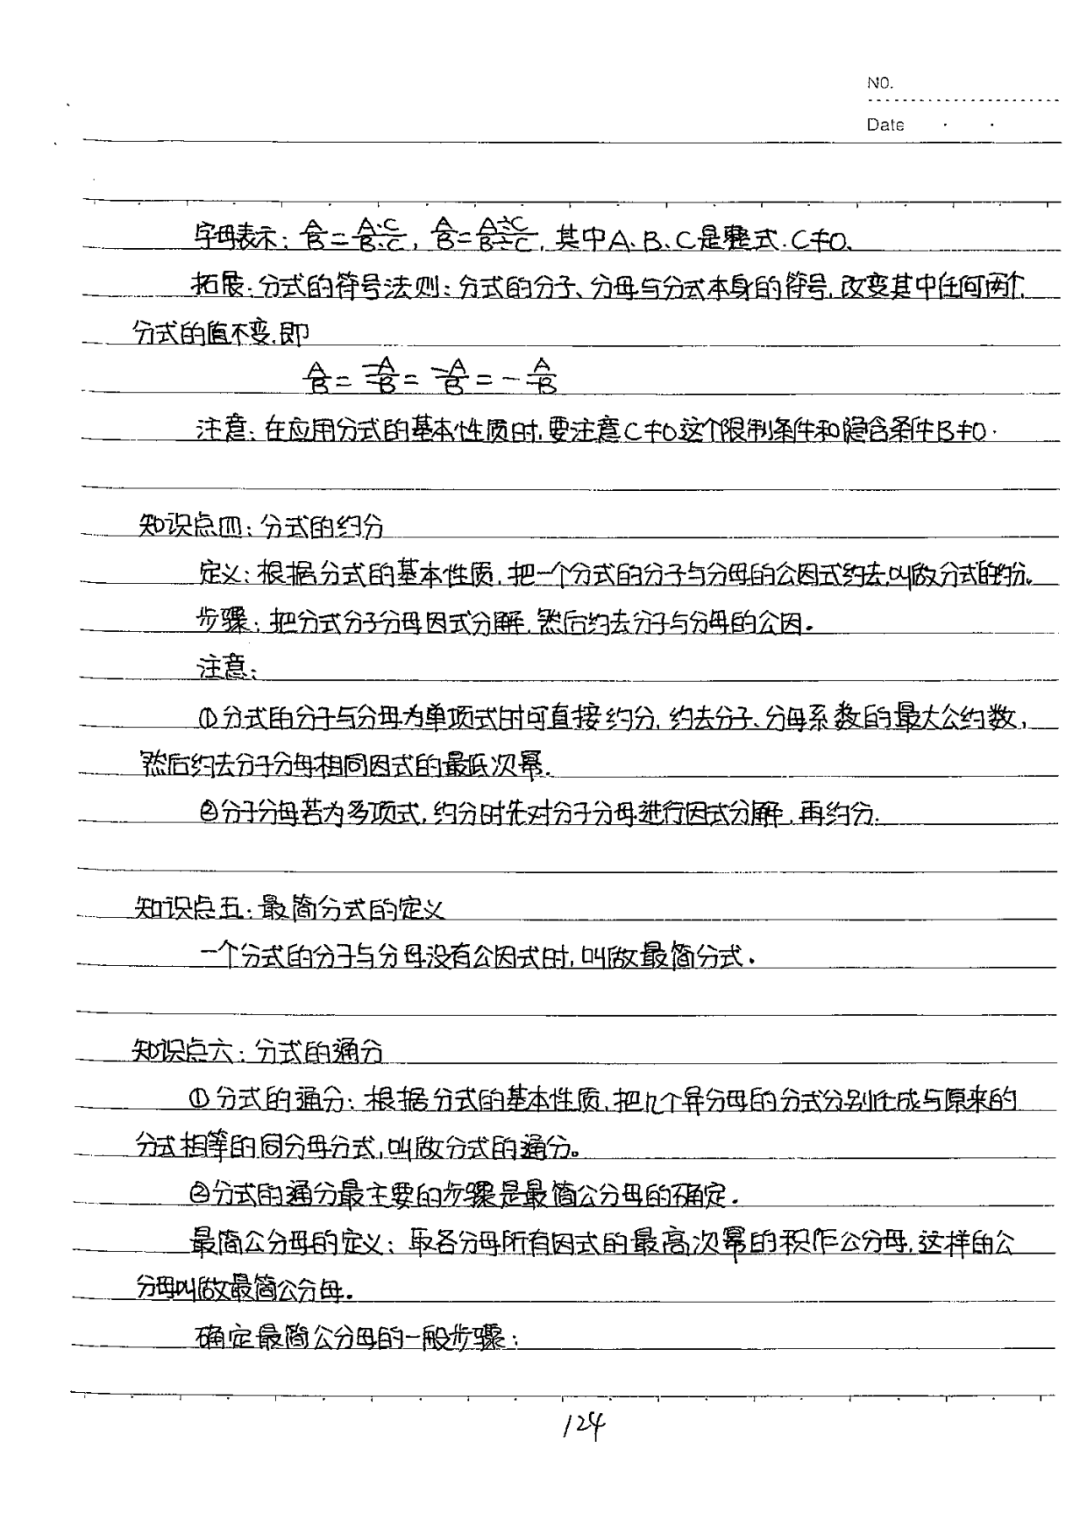 NO.
Date
字母表示：A/B=A·C/B·C，A/B=A÷C/B÷C，其中A、B、C是整式，C≠0.
拓展：分式的符号法则：分式的分子、分母与分式本身的符号，改变其中任何两个，
分式的值不变，即
A/B=-A/-B=-A/B=-A/-B
注意：在应用分式的基本性质时，要注意C≠0这个限制条件和隐含条件B≠0.
知识点四：分式的约分
定义：根据分式的基本性质，把一个分式的分子与分母的公因式约去，叫做分式的约分。
步骤：把分式分子分母因式分解，然后约去分子与分母的公因。
注意：
①分式的分子与分母为单项式时可直接约分，约去分子、分母系数的最大公约数，
然后约去分子分母相同因式的最低次幂.
②分子分母若为多项式，约分时先对分子分母进行因式分解，再约分.
知识点五：最简分式的定义
一个分式的分子与分母没有公因式时，叫做最简分式。
知识点六：分式的通分
①分式的通分：根据分式的基本性质，把几个异分母的分式分别化成与原来的
分式相等的同分母分式，叫做分式的通分。
②分式的通分最主要的步骤是最简公分母的确定.
最简公分母的定义：取各分母所有因式的最高次幂的积作公分母，这样的公
分母叫做最简公分母.
确定最简公分母的一般步骤：
124